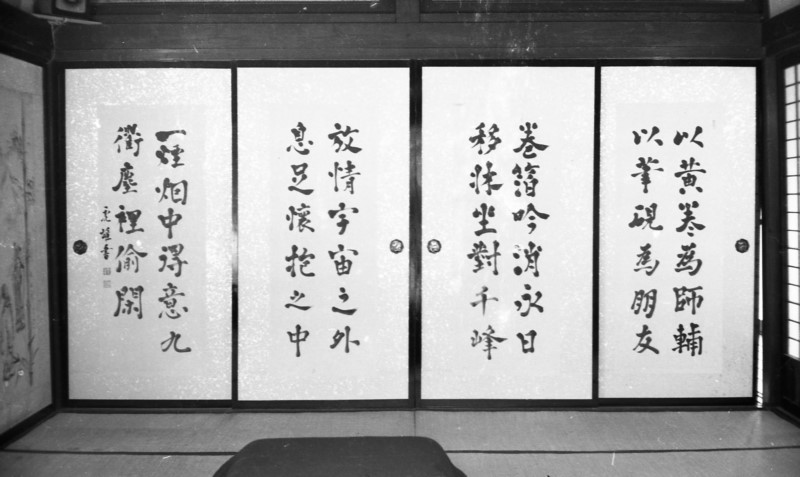 以黄巻為師輔
以筆硯為朋友
巻箔吟消永日
移牀坐對千峰
放情宇宙之外
息足懷抱之中
一煙烟中得意九
衢塵裡偷閑